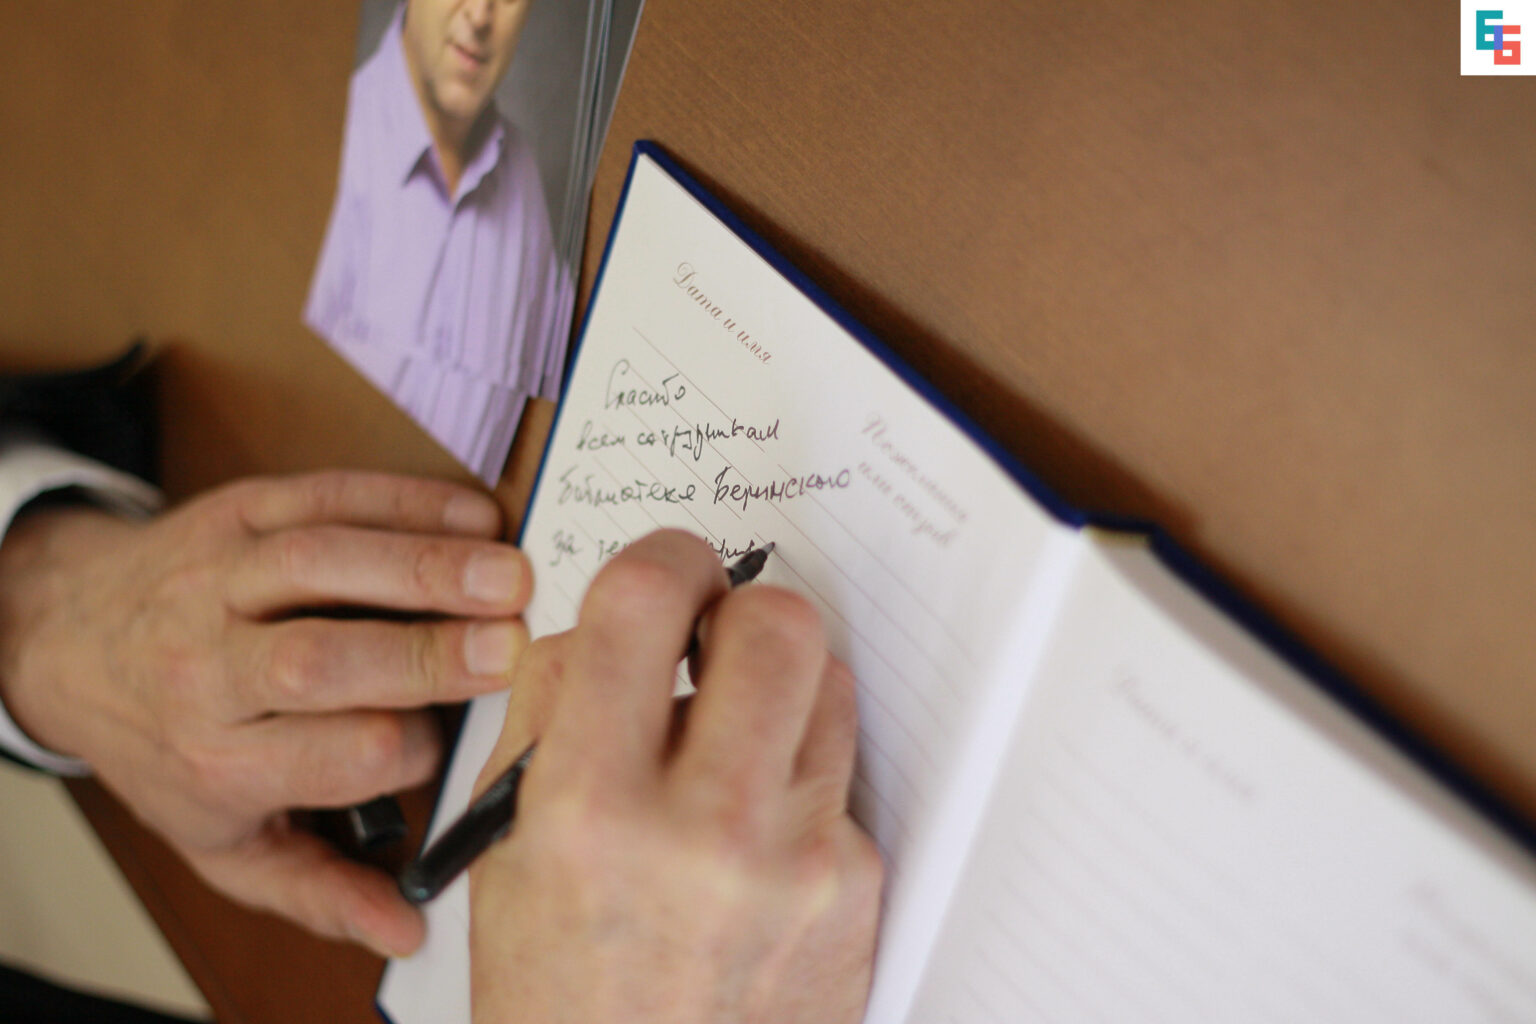 Дата и имя
Пожелания
или отзыв
Спасибо
всем сотрудникам
Библиотеке Белинского
за